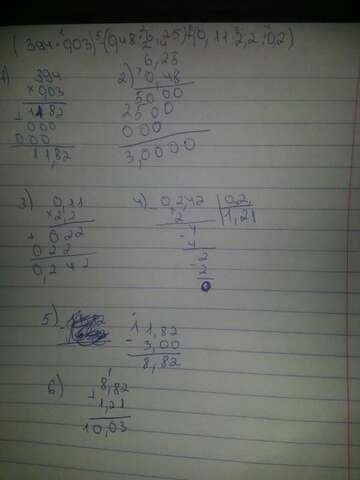 (394·903)-(948·6,25)+(0,11·2,2:0,2)
1) 394
×903
+1182
000
000
11,82
2) 6,25
0,48
5000
2500
000
3,0000
3) 0,11
×2,2
+022
022
0,242
4) 0,242 | 0,2
2 | 1,21
-4
4
-2
2
0
5) 11,82
-3,00
8,82
6) 8,82
+1,21
10,03